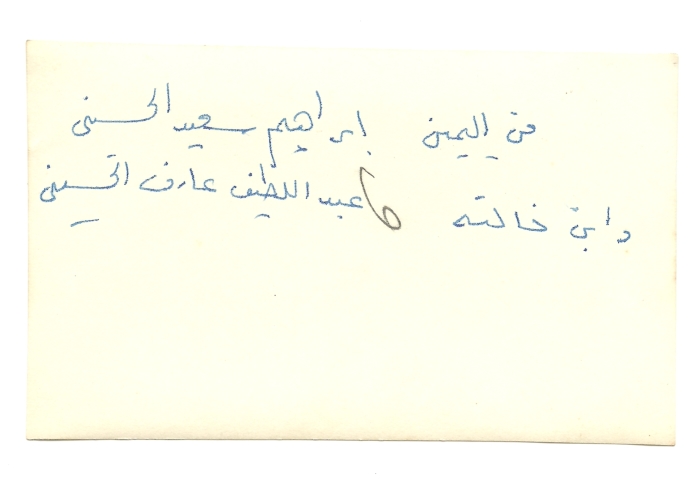 من اليمين ابراهيم سعيد الحسيني
وابن خالته عبد اللطيف عارف الحسيني